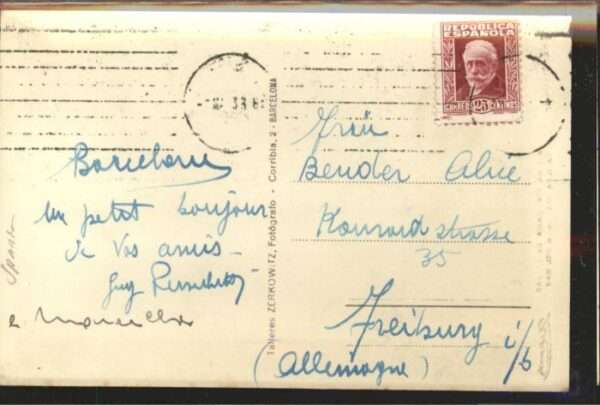 REPUBLICA
ESPAÑOLA
CORREOS 25 CENTIMES
33
Talleres ZERKOWITZ, Fotógrafo - Corribia, 2 - BARCELONA
Barcelone
un petit bonjour
de vos amis
Guy
e
Frau
Bender Alice
Konradstrasse
35
Freiburg i/b
(Allemagne)